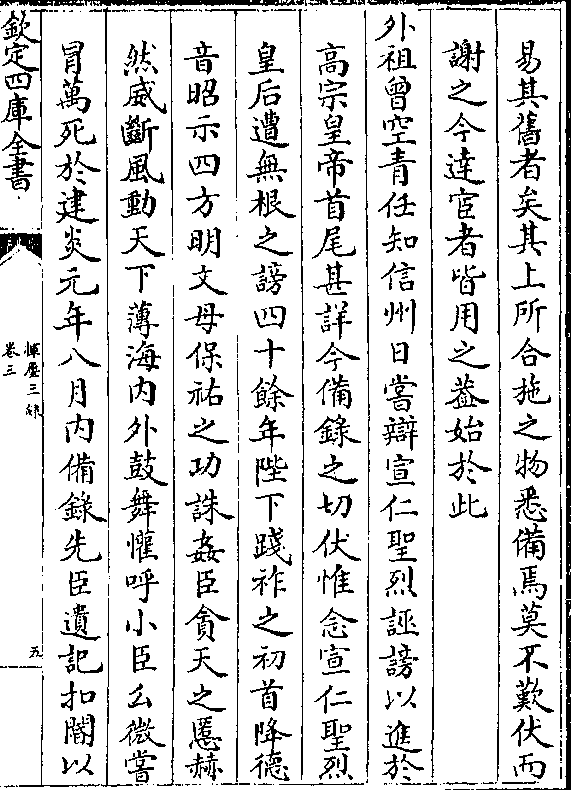 易其舊者矣其上所合施之物悉備焉莫不歎伏而
謝之今達宦者皆用之葢始於此
外祖曾空青任知信州日嘗辯宣仁聖烈誣謗以進於
高宗皇帝首尾甚詳今備錄之切伏惟念宣仁聖烈
皇后遭無根之謗四十餘年陛下踐祚之初首降德
音昭示四方明文母保祐之功誅姦臣貪天之慝赫
然威斷風動天下薄海内外鼓舞懽呼小臣么微嘗
冒萬死於建炎元年八月内備錄先臣遺記扣閽以
欽定四庫全書
揮麈三錄
卷三
五